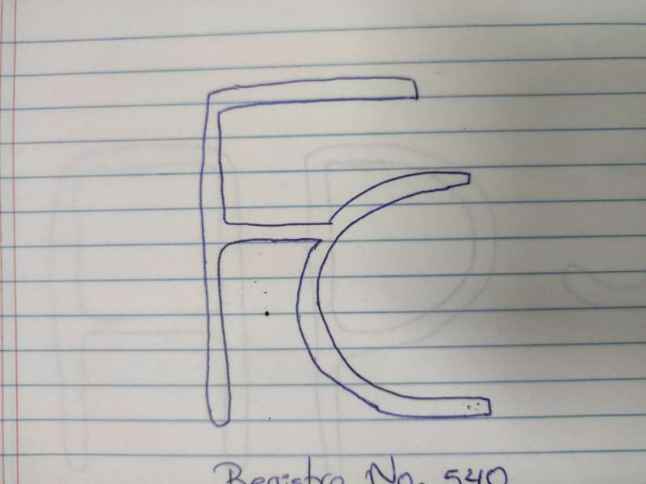 FC
Registro No. 540